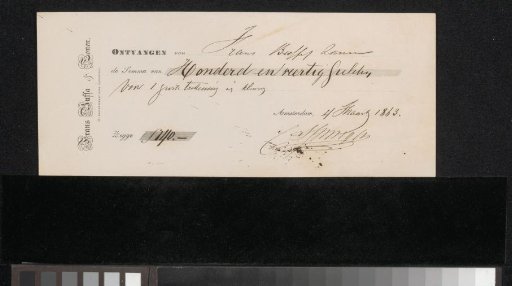 Frans Buffa & Zonen.
ONTVANGEN van Frans Buffa & Zonen
de Somma van Honderd en veertig Gulden
voor 1 teekening in kleur
Amsterdam 4 Maart 1863.
Zegge ƒ 140.—